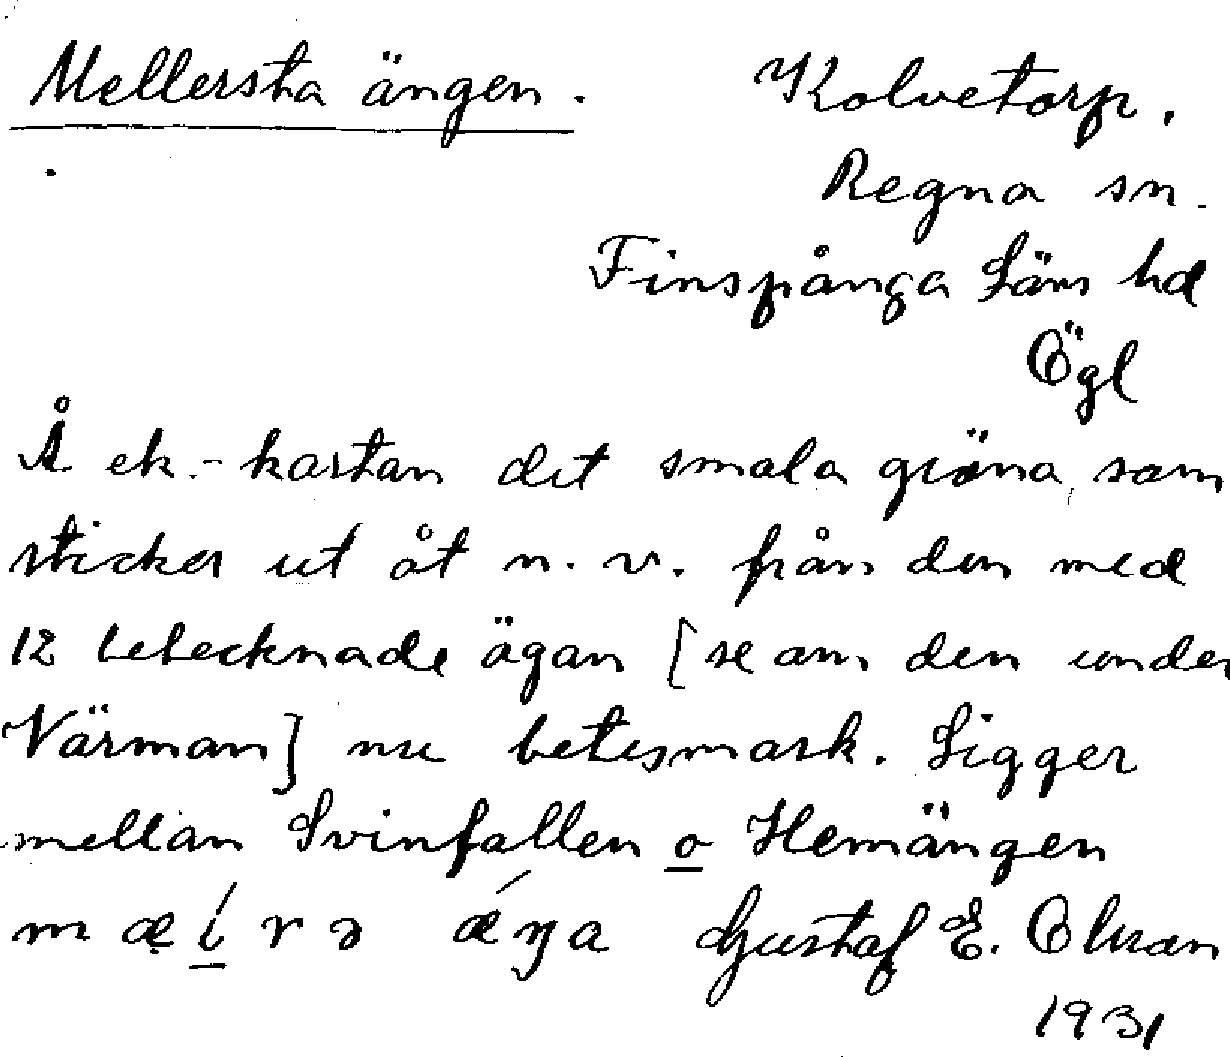 Mellersta ängen. Kolvetorp.
Regna sn.
Finspånga Läns hd
Ögl
Å ek.-kartan det smala gröna, som
sticker ut åt n.v. från den med
12 betecknade ägan [se om den under
Värman] nu betesmark. Ligger
mellan Svinfallen o Hemängen
Gustaf E. Olsson
1931